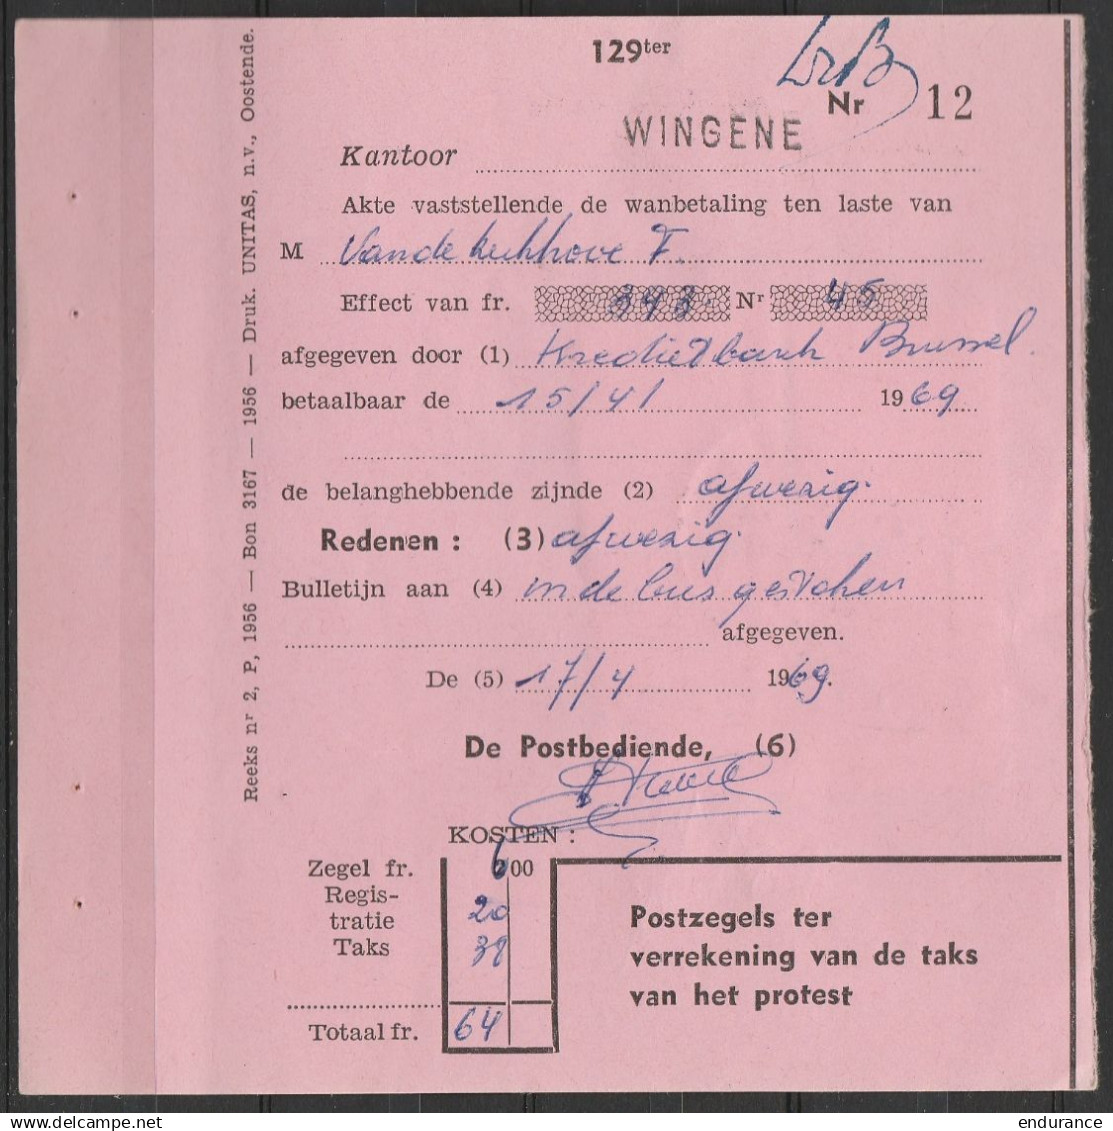 129ter
Nr 12
WINGENE
Kantoor
Akte vaststellende de wanbetaling ten laste van
M Vandekerkhove F.
Effect van fr. 393. Nr 45
afgegeven door (1) Kredietbank Brussel.
betaalbaar de 15/4/ 1969
de belanghebbende zijnde (2) afwezig.
Redenen : (3) afwezig.
Bulletijn aan (4) in de bus gestoken
afgegeven.
De (5) 17/4 1969.
De Postbediende, (6)
KOSTEN :
Zegel fr. 6 00
Regis-
tratie 20
Taks 38
Totaal fr. 64
Postzegels ter
verrekening van de taks
van het protest
Reeks nr 2, P, 1956 — Bon 3167 — 1956 — Druk. UNITAS, n.v., Oostende.
endurance